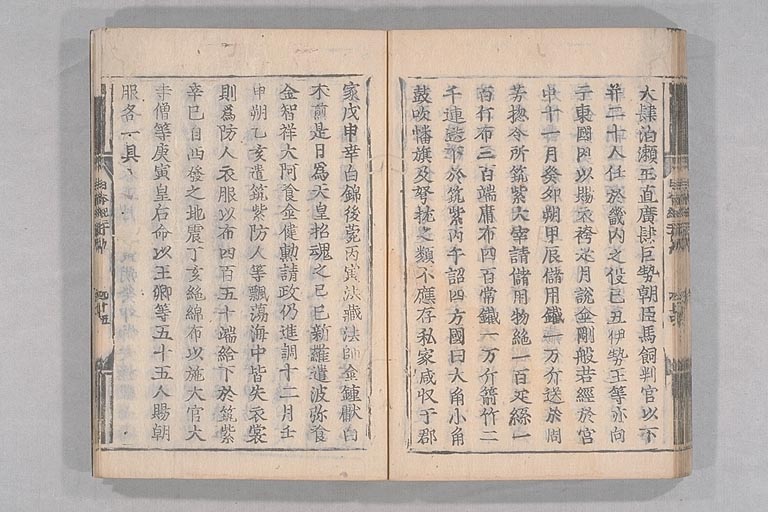 大肆泊瀬王直廣肆巨勢朝臣馬飼判官以下
并二十人任於畿內之役己丑伊勢王等亦向
于東國因以賜衣袴是月說金剛般若經於宮
中十一月癸卯朔甲辰儲用鐵一万斤送於周
芳揔令所筑紫大宰請儲用物絁一百疋絲一
百斤布三百端庸布四百常鐵一万斤箭竹二
千連送下於筑紫丙午詔四方國曰大角小角
鼓吹幡旗及弩抛之類不應存私家咸収于郡
家戊申幸白錦後菀丙寅法藏法師金鍾獻白
朮煎是日爲天皇招魂之己巳新羅遣波弥飡
金智祥大阿飡金健勳請政仍進調十二月壬
申朔乙亥遣筑紫防人等飄蕩海中皆失衣裳
則爲防人衣服以布四百五十端給下於筑紫
辛巳自西發之地震丁亥絁綿布以施大官大
寺僧等庚寅皇后命以王卿等五十五人賜朝
服各一具